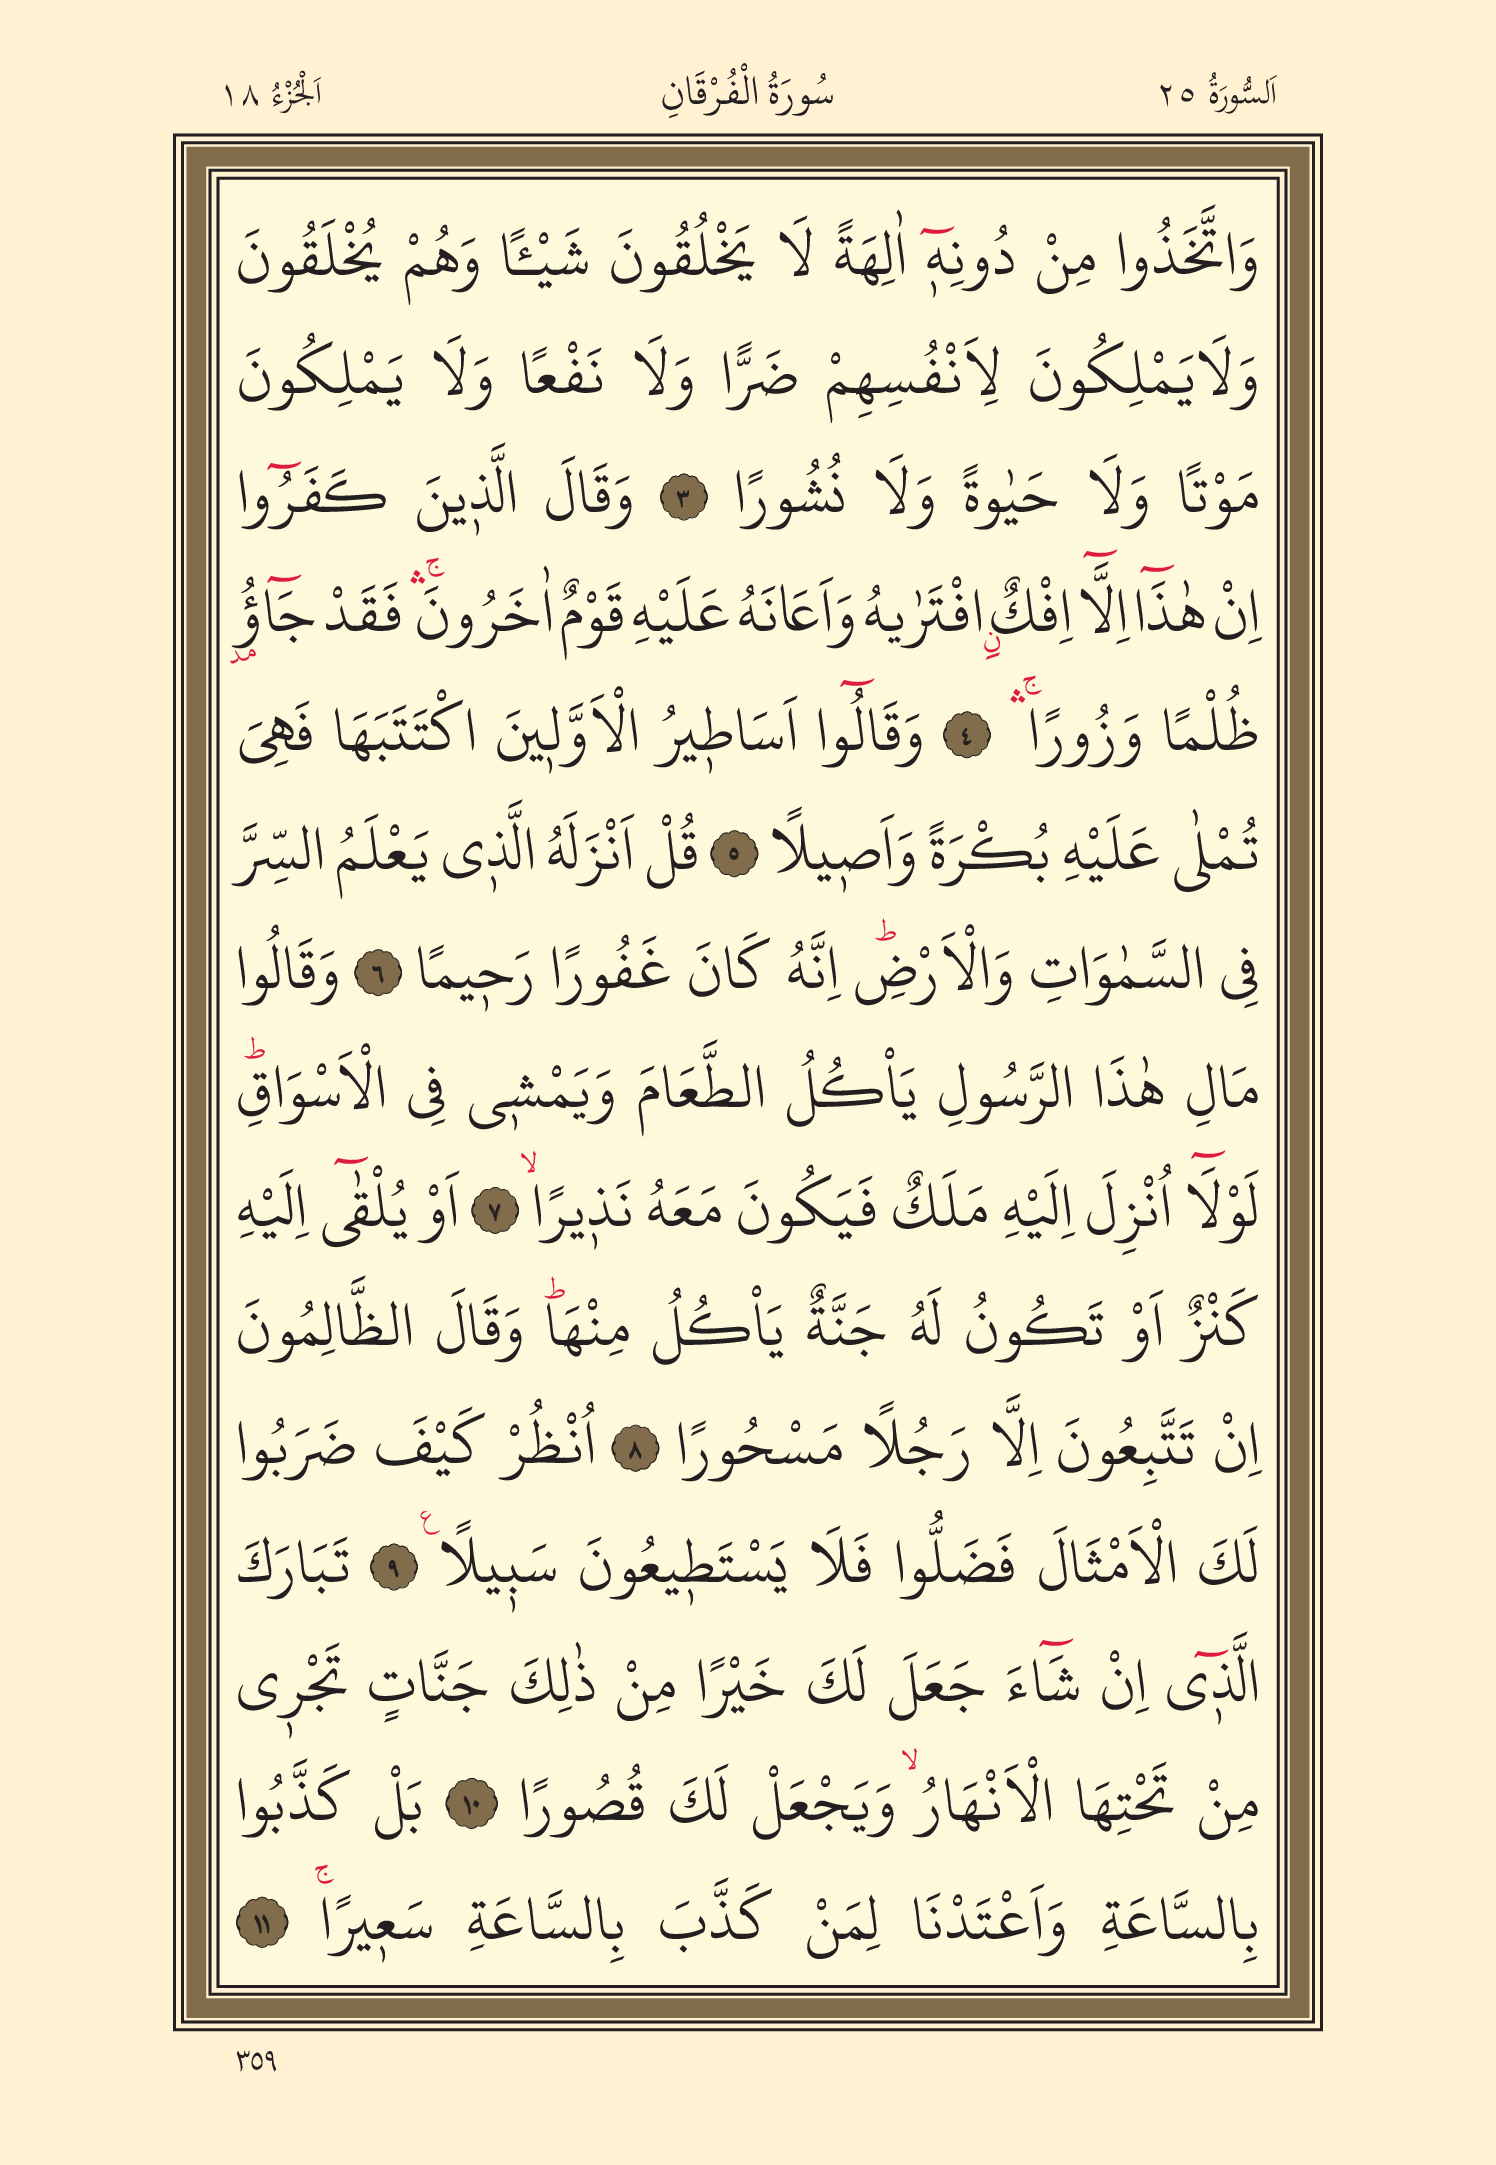 اَلسُّورَةُ ٢٥ سُورَةُ الْفُرْقَانِ اَلْجُزْءُ ١٨
وَاتَّخَذُوا مِنْ دُونِه۪ٓ اٰلِهَةً لَا يَخْلُقُونَ شَيْـًٔا وَهُمْ يُخْلَقُونَ
وَلَايَمْلِكُونَ لِاَنْفُسِهِمْ ضَرًّا وَلَا نَفْعًا وَلَا يَمْلِكُونَ
مَوْتًا وَلَا حَيٰوةً وَلَا نُشُورًا ﴿٣﴾ وَقَالَ الَّذ۪ينَ كَفَرُٓوا
اِنْ هٰذَٓا اِلَّٓا اِفْكٌۨ افْتَرٰيهُ وَاَعَانَهُ عَلَيْهِ قَوْمٌ اٰخَرُونَۚۛ فَقَدْ جَٓاؤُ۫
ظُلْمًا وَزُورًاۚۛ ﴿٤﴾ وَقَالُٓوا اَسَاط۪يرُ الْاَوَّل۪ينَ اكْتَتَبَهَا فَهِىَ
تُمْلٰى عَلَيْهِ بُكْرَةً وَاَص۪يلًا ﴿٥﴾ قُلْ اَنْزَلَهُ الَّذ۪ى يَعْلَمُ السِّرَّ
فِى السَّمٰوَاتِ وَالْاَرْضِۜ اِنَّهُ كَانَ غَفُورًا رَح۪يمًا ﴿٦﴾ وَقَالُوا
مَالِ هٰذَا الرَّسُولِ يَاْكُلُ الطَّعَامَ وَيَمْش۪ى فِى الْاَسْوَاقِۜ
لَوْلَٓا اُنْزِلَ اِلَيْهِ مَلَكٌ فَيَكُونَ مَعَهُ نَذ۪يرًاۙ ﴿٧﴾ اَوْ يُلْقٰٓى اِلَيْهِ
كَنْزٌ اَوْ تَكُونُ لَهُ جَنَّةٌ يَاْكُلُ مِنْهَاۜ وَقَالَ الظَّالِمُونَ
اِنْ تَتَّبِعُونَ اِلَّا رَجُلًا مَسْحُورًا ﴿٨﴾ اُنْظُرْ كَيْفَ ضَرَبُوا
لَكَ الْاَمْثَالَ فَضَلُّوا فَلَا يَسْتَط۪يعُونَ سَب۪يلًا ع ﴿٩﴾ تَبَارَكَ
الَّذ۪ٓى اِنْ شَٓاءَ جَعَلَ لَكَ خَيْرًا مِنْ ذٰلِكَ جَنَّاتٍ تَجْر۪ى
مِنْ تَحْتِهَا الْاَنْهَارُۙ وَيَجْعَلْ لَكَ قُصُورًا ﴿١٠﴾ بَلْ كَذَّبُوا
بِالسَّاعَةِ وَاَعْتَدْنَا لِمَنْ كَذَّبَ بِالسَّاعَةِ سَع۪يرًاۚ ﴿١١﴾
٣٥٩